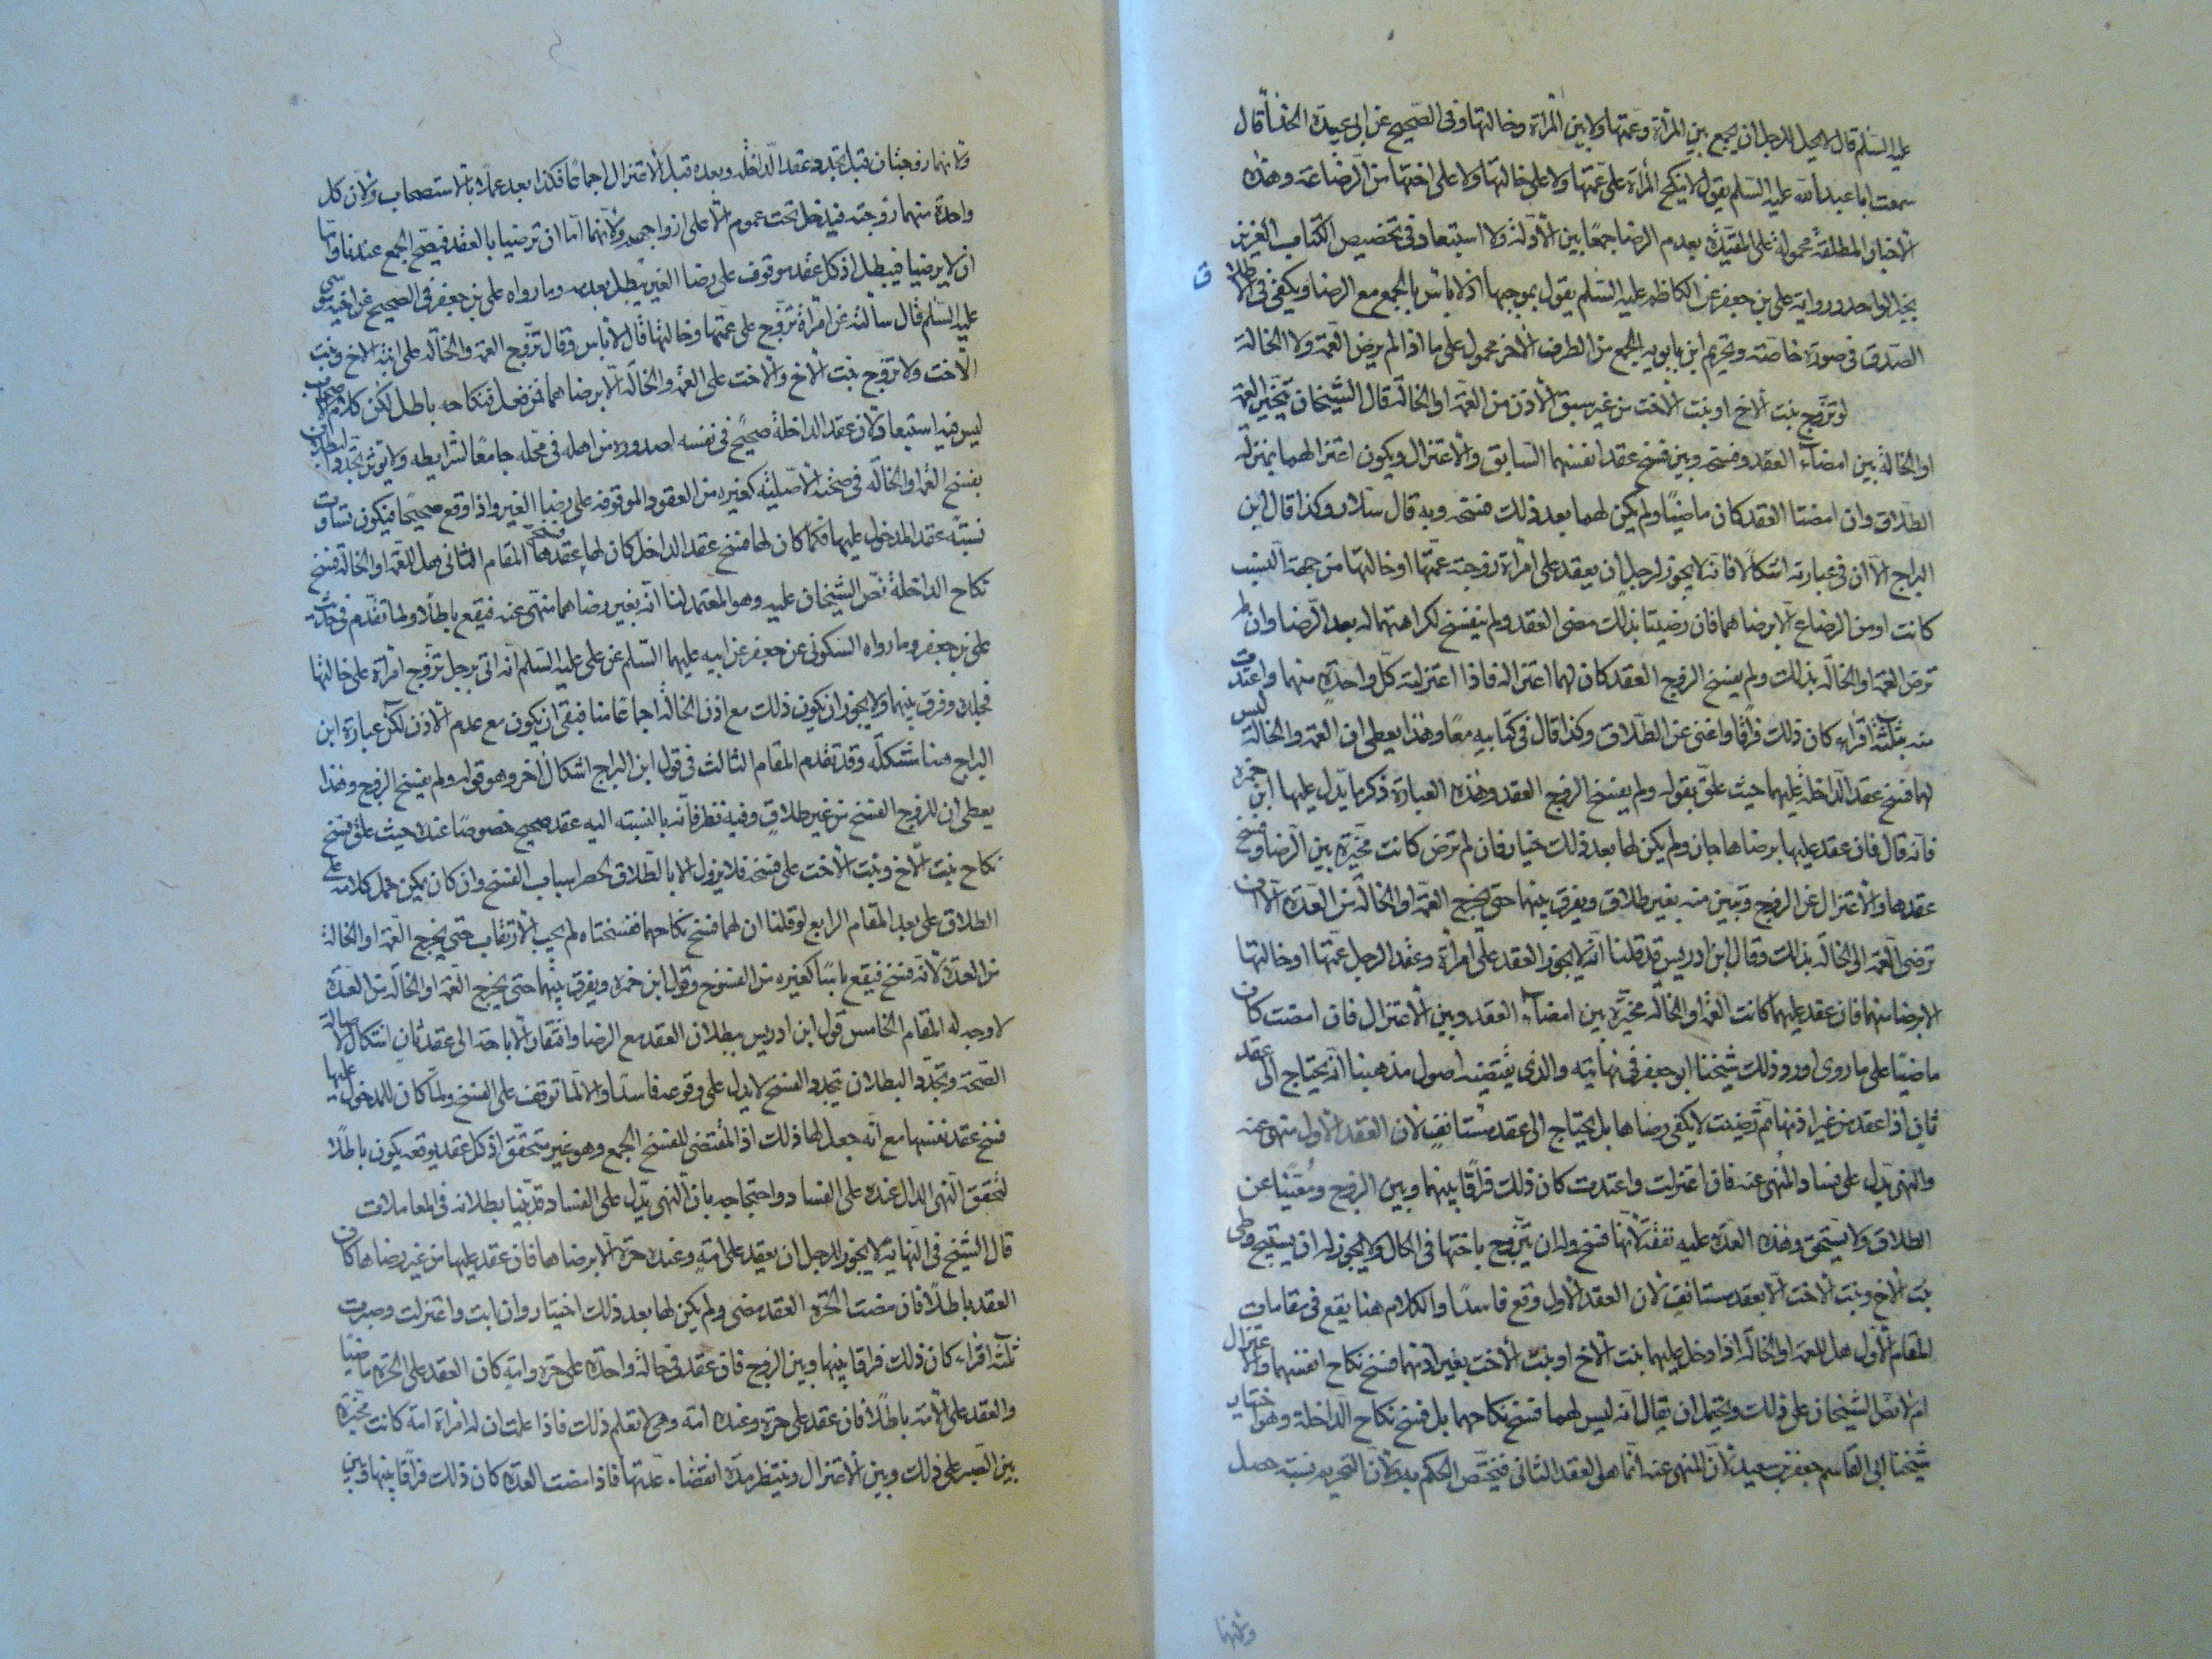 عليه السلم قال لا يحل للرجل ان يجمع بين المرأة وعمتها ولا بين المرأة وخالتها وفى الصحيح عن ابى عبيدة الحذا قال
سمعت ابا عبد الله عليه السلم يقول لا ينكح المرأة على عمتها ولا على خالتها ولا على اختها من الرضاعة وهذه
الاخبار المطلقة محمولة على المقيدة بعدم الرضا جمعا بين الأدلة ولا استبعاد فى تخصيص الكتاب العزيز
بخبر الواحد ورواية على بن جعفر عن الكاظم عليه السلم يقول بموجبها اذ لا باس بالجمع مع الرضا ويكفى فى الاطلاق
الصدق فى صورة خاصة وتحريم ابن بابويه الجمع من الطرف الآخر محمول على ما اذا لم يرض العمة ولا الخالة
لو تزوج بنت الاخ او بنت الاخت من غير سبق الاذن من العمة او الخالة قال الشيخان يتخير العمة
او الخالة بين امضاء العقد وفسخه وبين فسخ عقد انفسهما السابق والاعتزال ويكون اعتزالهما بمنزلة
الطلاق وان امضتا العقد كان ماضيا ولم يكن لهما بعد ذلك فسخه وبه قال سلار وكذا قال ابن
البراج الا ان فى عبارته اشكالا فانه لا يجوز لرجل ان يعقد على امرأة زوجته عمتها او خالتها من جهة النسب
كانت او من الرضاع الا برضاهما فان رضيتا بذلك مضى العقد ولم ينفسخ لكراهتهما له بعد الرضا وان لم
ترض العمة او الخالة بذلك ولم يفسخ الزوج العقد كان لهما اعتزاله فاذا اعتزلته كل واحدة منهما واعتدت
منه بثلثة اقراء كان ذلك فراقا واغنى عن الطلاق وكذا قال فى كتابيه معا وهذا يعطى ان العمة والخالة ليس
لهما فسخ عقد الداخلة عليهما حيث علق بقوله ولم يفسخ الزوج العقد وهذه العبارة ذكر ما يدل عليها ابن حمزة
فانه قال فان عقد عليها برضاها جاز ولم يكن لها بعد ذلك خيار فان لم ترض كانت مخيرة بين الرضا وفسخ
عقدها والاعتزال عن الزوج وتبين منه بغير طلاق ويفرق بينهما حتى تخرج العمة او الخالة من العدة الا ان
ترضى العمة الى الخالة بذلك وقال ابن ادريس قد قلنا انه لا يجوز العقد على امرأة وعند الرجل عمتها او خالتها
الا برضا منهما فان عقد عليهما كانت العمة او الخالة مخيرة بين امضاء العقد وبين الاعتزال فان امضت كان
ماضيا على ما روى اورد ذلك شيخنا ابو جعفر فى نهايته والذى يقتضيه اصول مذهبنا انه يحتاج الى عقد
ثان اذا عقد من غير اذنها ثم رضيت لا يكفى رضاها بل يحتاج الى عقد مستانف لان العقد الاول منهى عنه
والنهى يدل على فساد المنهى عنه فان اعتزلت واعتدت كان ذلك فراقا بينهما وبين الزوج ومغنيا عن
الطلاق ولا يستحق وهذه العدة عليه نفقة لانها فسخ وله ان يتزوج باختها فى الحال ولا يجوز له ان يستبيح وطى
بنت الاخ وبنت الاخت الا بعقد مستانف لان العقد الاول وقع فاسدا والكلام هنا يقع فى مقامات
المقام الاول هل للعمة او الخالة اذا دخل عليهما بنت الاخ او بنت الاخت بغير اذنهما فسخ نكاح انفسهما والاعتزال
ام لا نص الشيخان على ذلك ويحتمل ان يقال انه ليس لهما فسخ نكاحهما بل فسخ نكاح الداخلة وهو اختيار
شيخنا ابى القاسم جعفر بن سعيد لان المنهى عنه انما هو العقد الثانى فيختص الحكم به ولان التحريم نسبته حصل
ولانهما
ولانهما زوجتان قبل تجدد عقد الداخلة وبعده قبل الاعتزال اجماعا فكذا بعده عملا بالاستصحاب ولان كل
واحدة منهما زوجته فيدخل تحت عموم الا على ازواجهم ولانهما اما ان ترضيا بالعقد فيصح الجمع عندنا واما
ان لا يرضيا فيبطل اذ كل عقد موقوف على رضا الغير يبطل بعدمه وما رواه على بن جعفر فى الصحيح عن اخيه موسى
عليه السلم قال سألته عن امرأة تزوج على عمتها وخالتها قال لا باس وقال تزوج العمة والخالة على ابنة الاخ وبنت
الاخت ولا تزوج بنت الاخ والاخت على العمة والخالة الا برضا هما فمن فعل فنكاحه باطل لكن كلام الاصحاب
ليس فيه استبعاد لان عقد الداخلة صحيح فى نفسه لصدوره من اهله فى محله جامعا لشرايطه ولا يؤثر تجدد البطلان
بفسخ العمة او الخالة فى صحته الاصلية كغيره من العقود الموقوفة على رضا الغير واذا وقع صحيحا فيكون تساوت
نسبته عقد المدخول عليها فكما كان لها فسخ عقد الداخل كان لها فسخ عقدها المقام الثانى هل للعمة او الخالة فسخ
نكاح الداخلة نص الشيخان عليه وهو المعتمد لنا انه بغير رضاهما منهى عنه فيقع باطلا ولما تقدم فى حديث
على بن جعفر وما رواه السكونى عن جعفر عن ابيه عليهما السلم عن على عليه السلم انه اتى برجل تزوج امرأة على خالتها
فجلده وفرق بينهما ولا يجوز ان يكون ذلك مع اذن الخالة اجماعا منا فبقى ان يكون مع عدم الاذن لكن عبارة ابن
البراج هنا مشكلة وقد تقدم المقام الثالث فى قول ابن البراج اشكال آخر وهو قوله ولم يفسخ الزوج وهذا
يعطى ان للزوج الفسخ من غير طلاق وفيه نظر فانه بالنسبة اليه عقد صحيح خصوصا عنده حيث علق فسخ
نكاح بنت الاخ وبنت الاخت على فسخه فلا يزول الا بالطلاق لحصر اسباب الفسخ وان كان يمكن حمل كلامه على
الطلاق على بعد المقام الرابع لو قلنا ان لهما فسخ نكاحهما ففسختاه لم يجب الارتقاب حتى يخرج العمة او الخالة
من العدة لانه فسخ فيقع باينا كغيره من الفسوخ وقول ابن حمزة ويفرق بينهما حتى يخرج العمة او الخالة من العدة
لا وجه له المقام الخامس قول ابن ادريس ببطلان العقد مع الرضا وافتقار الاباحة الى عقد ثان اشكال لاصالة
الصحة وتجدد البطلان بتجدد الفسخ لا يدل على وقوعه فاسدا والا لما توقف على الفسخ ولما كان للمدخول عليها
فسخ عقد نفسها مع انه جعل لها ذلك اذ المقتضى للفسخ الجمع وهو غير متحقق اذ كل عقد يوقعه يكون باطلا
لتحقق النهى الدال عنده على الفساد واحتجاجه بان النهى يدل على الفساد قد بينا بطلانه فى المعاملات
قال الشيخ فى النهاية لا يجوز للرجل ان يعقد على امة وعنده حرة الا برضاها فان عقد عليها من غير رضاها كان
العقد باطلا فان مضت الحرة العقد مضى ولم يكن لها بعد ذلك اختيار وان ابت واعتزلت وصبرت
ثلثة اقراء كان ذلك فراقا بينها وبين الزوج فان عقد فى حالة واحدة على حرة وامة كان العقد على الحرة ماضيا
والعقد على الامة باطلا فان عقد على حرة وعنده امة وهى لا تعلم ذلك فاذا علمت ان له امرأة امة كانت مخيرة
بين الصبر على ذلك وبين الاعتزال وينتظر مدة انقضاء عدتها فاذا مضت العدة كان ذلك فراقا بينها وبين